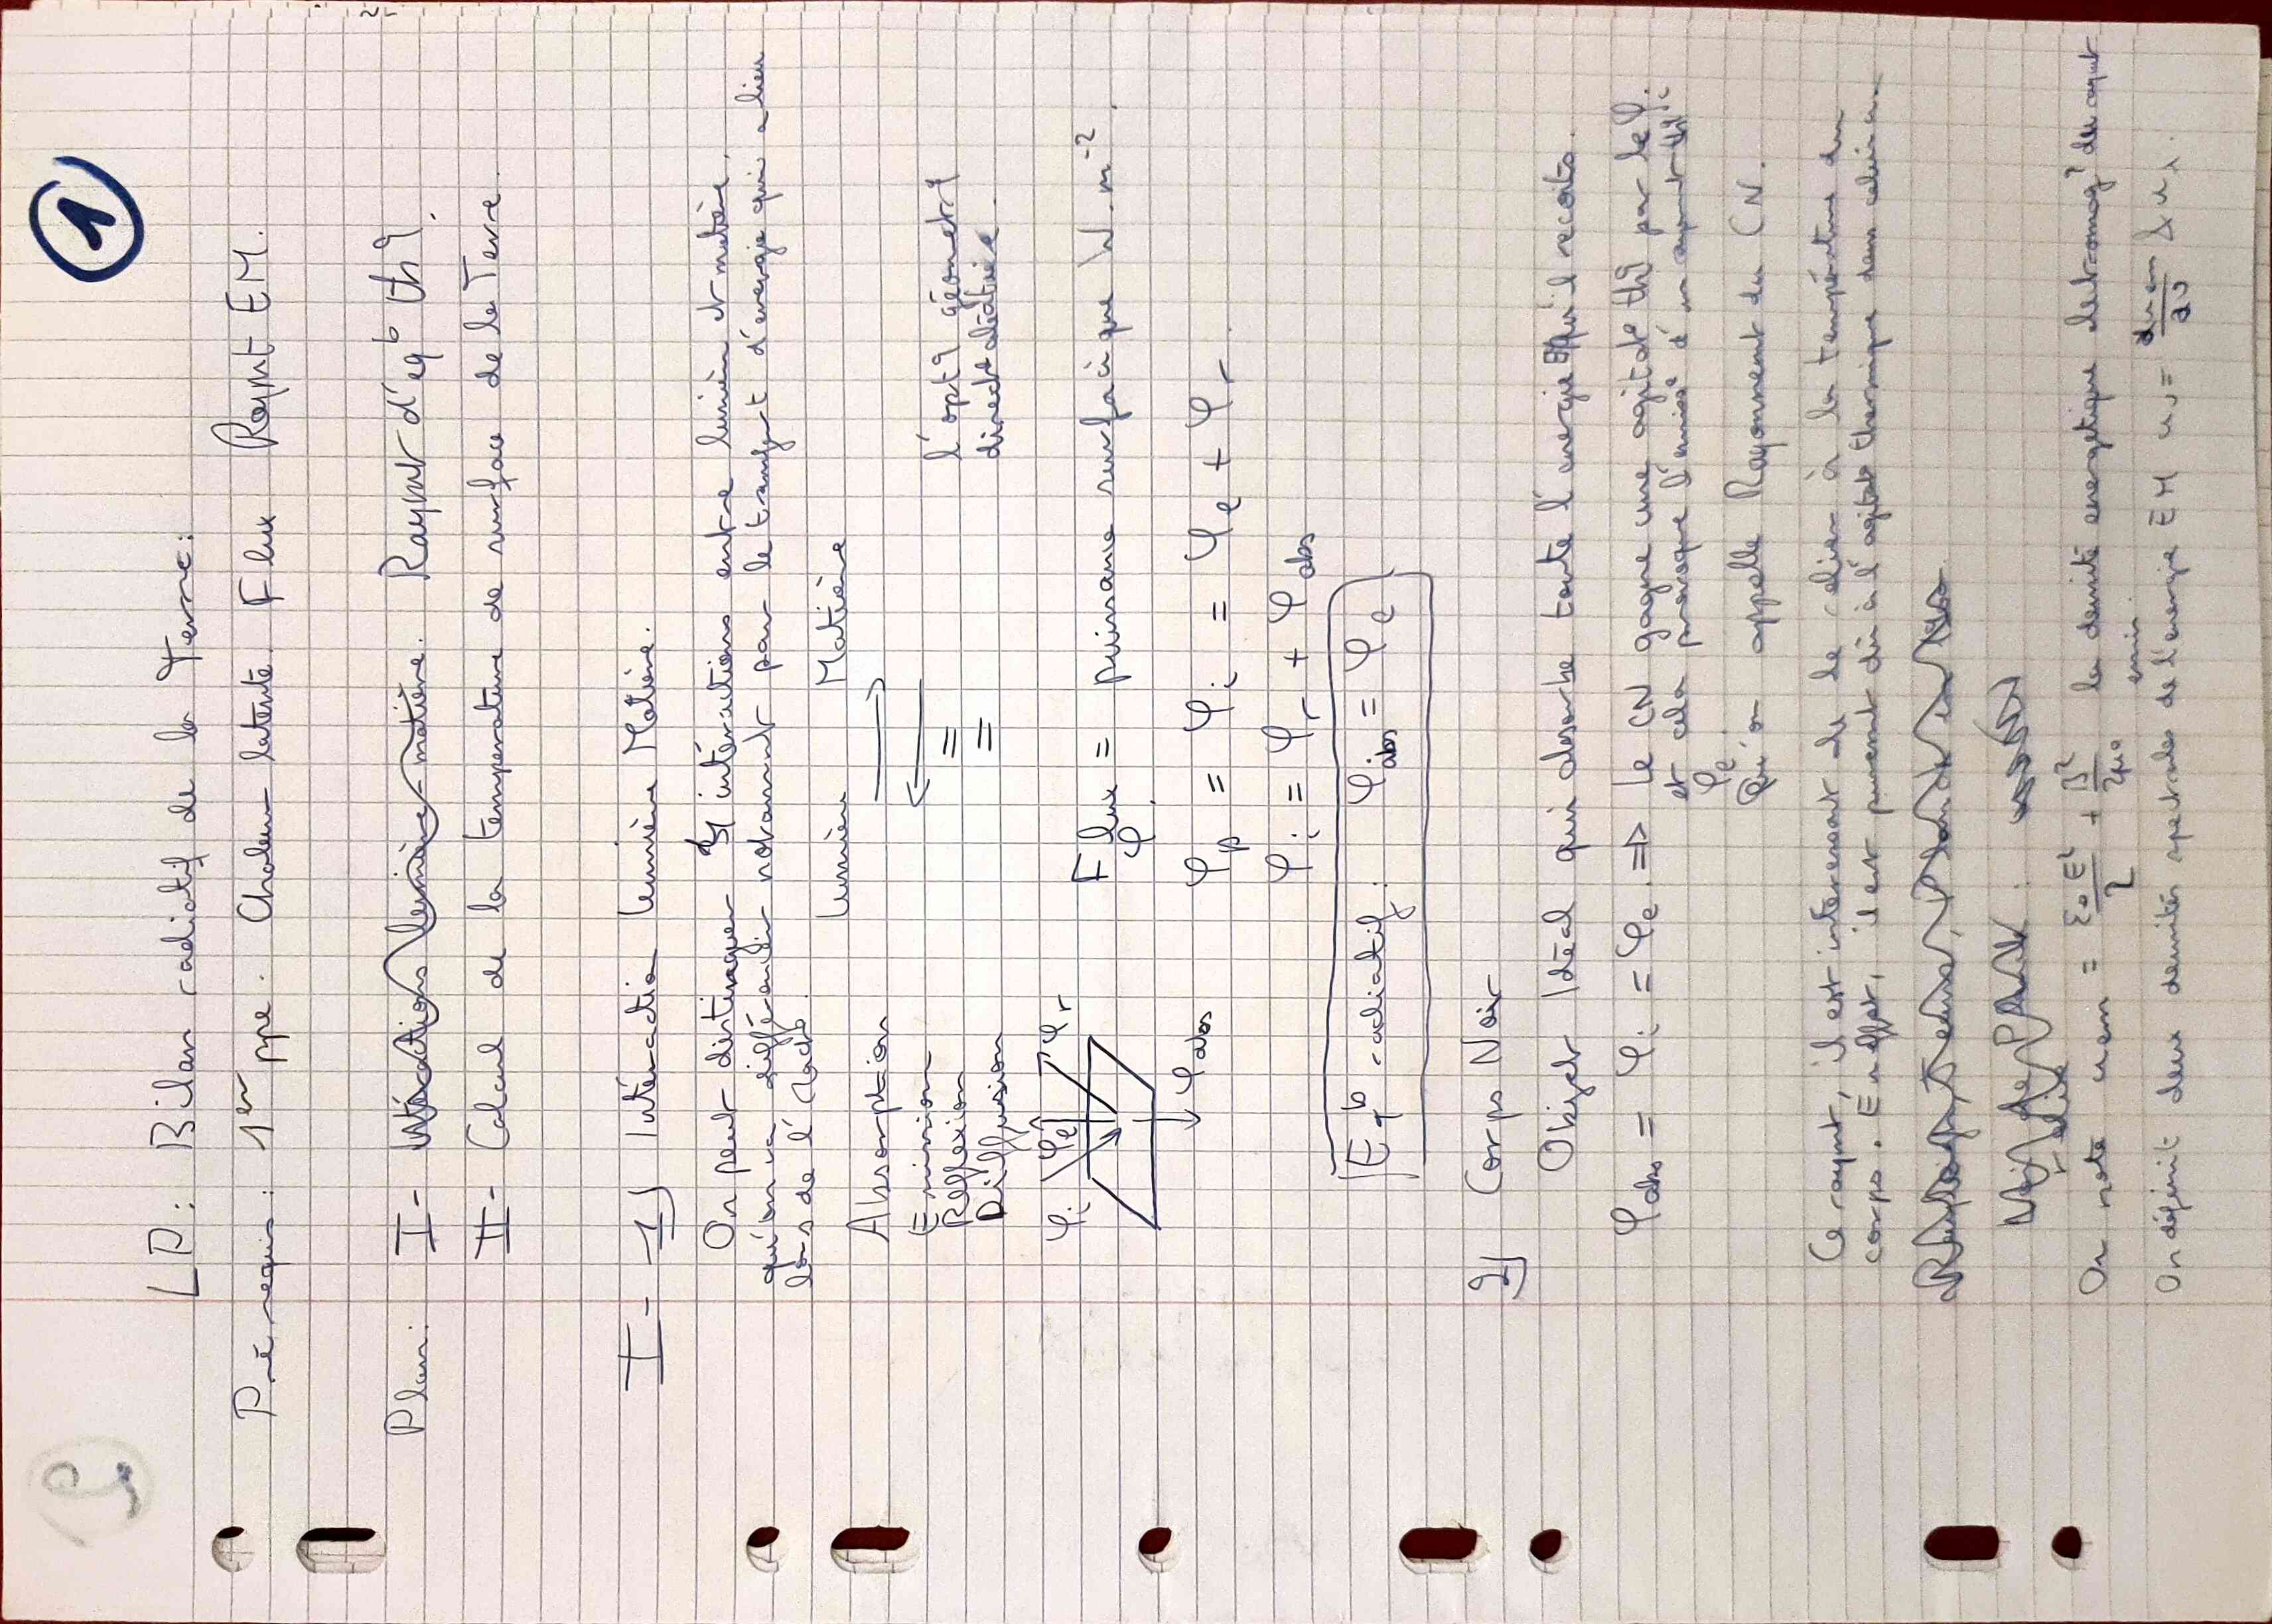 1
LP : Bilan radiatif de la Terre :
Pré requis : 1er ppe. Chaleur latente. Flux Raynt EM.
Plan : I - Intéractions lumière-matière. Raynt d'eqb thq.
II - Calcul de la température de surface de la Terre.
I - 1) Intéraction lumière Matière.
On peut distinguer des intéractions entre lumière et matière,
qu'on va différencier notamment par le transfert d'énergie qui a lieu
lors de l'
lumière Matière
Absorption
Emission
Réflexion = l'optq géométrq
Diffusion =
φi φe φr
φabs
Flux = puissance surfacique W.m⁻²
φ.
φp = φi = φe + φr.
φi = φr + φabs
Eqb radiatif : φabs = φe
2) Corps Noir
Objet Idéal qui absorbe toute l'énergie qu'il recoit.
φabs = φi = φe. => le CN gagne une agitat° thq par le φi
et cela provoque l'émiss° d'un raynt thq
φe.
Qu'on appelle Rayonnement du CN.
Ce raynt, il est interessant de le relier à la température du
corps. En effet, il est purement dû à l'agitat° thermique dans celui-ci.
On note uem = ε₀E²/2 + B²/2μ₀ la densité energétique du raynt
émis.
On définit deux densités spectrales de l'énergie EM uν = duem/dν & uλ.